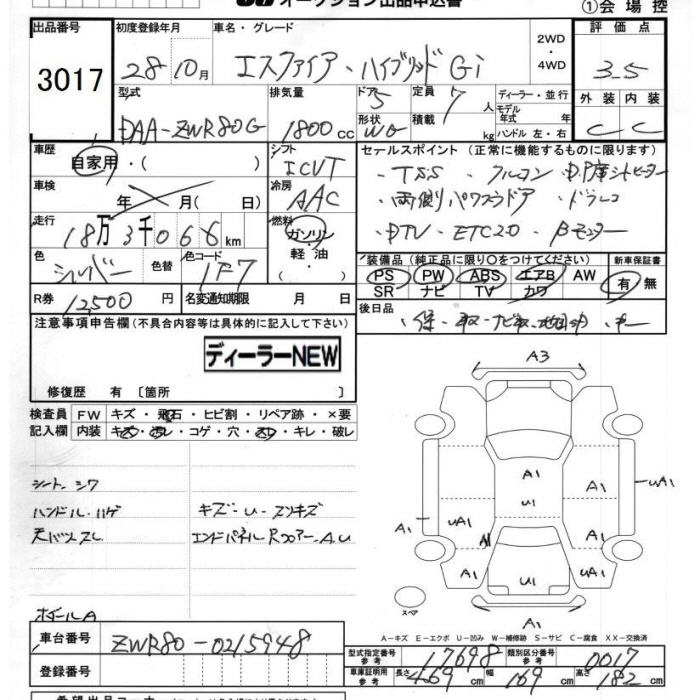 オークション出品申込書 ①会場控
出品番号 初度登録年月 車名・グレード 2WD・4WD 評価点
3017 28 10月 エスクァイア・ハイブリッドGi 3.5
型式 排気量 ドア 5 定員 7人 ディーラー・並行 外装 内装
DAA-ZWR80G 1800cc 形状 WG 積載 kg モデル年式 年 ハンドル 左・右 C C
車歴 自家用・( ) シフト ICVT セールスポイント (正常に機能するものに限ります)
車検 年 月( 日) 冷房 AAC
・TSS ・クルコン ・D.P席シートヒーター
・両側パワースライドドア ・ドラレコ
走行 18万3千066km 燃料 ガソリン・軽油・( )
・DTV ・ETC2.0 ・Bモニター
色 シルバー 色替 色コード 1F7
装備品(純正品に限り○をつけてください) 新車保証書
PS PW ABS エアB AW 有・無
SR ナビ TV カワ
R券 12,500円 名変通知期限 月 日
後日品 ・保・取・ナビ取
注意事項申告欄(不具合内容等は具体的に記入して下さい)
ディーラーNEW
修復歴 有〔箇所 〕
検査員 FW キズ・飛石・ヒビ割・リペア跡・×要
記入欄 内装 キズ・汚レ・コゲ・穴・スレ・キレ・破レ
シート.シワ
ハンドル.ハゲ キズ・U・スリキズ
天バリスレ エンドパネルRフロアー.A.U
ホイールA
A3
A1
U1
A1
UA1
A1
UA1
A1
A1
A1
U1
UA1
A1
スペア
A－キズ E－エクボ U－凹み W－補修跡 S－サビ C－腐食 XX－交換済
車台番号 ZWR80-0215948
型式指定番号 参考 17698 類別区分番号 参考 0017
登録番号 車庫証明用 参考 長さ 469 幅 169 高さ 182 cm